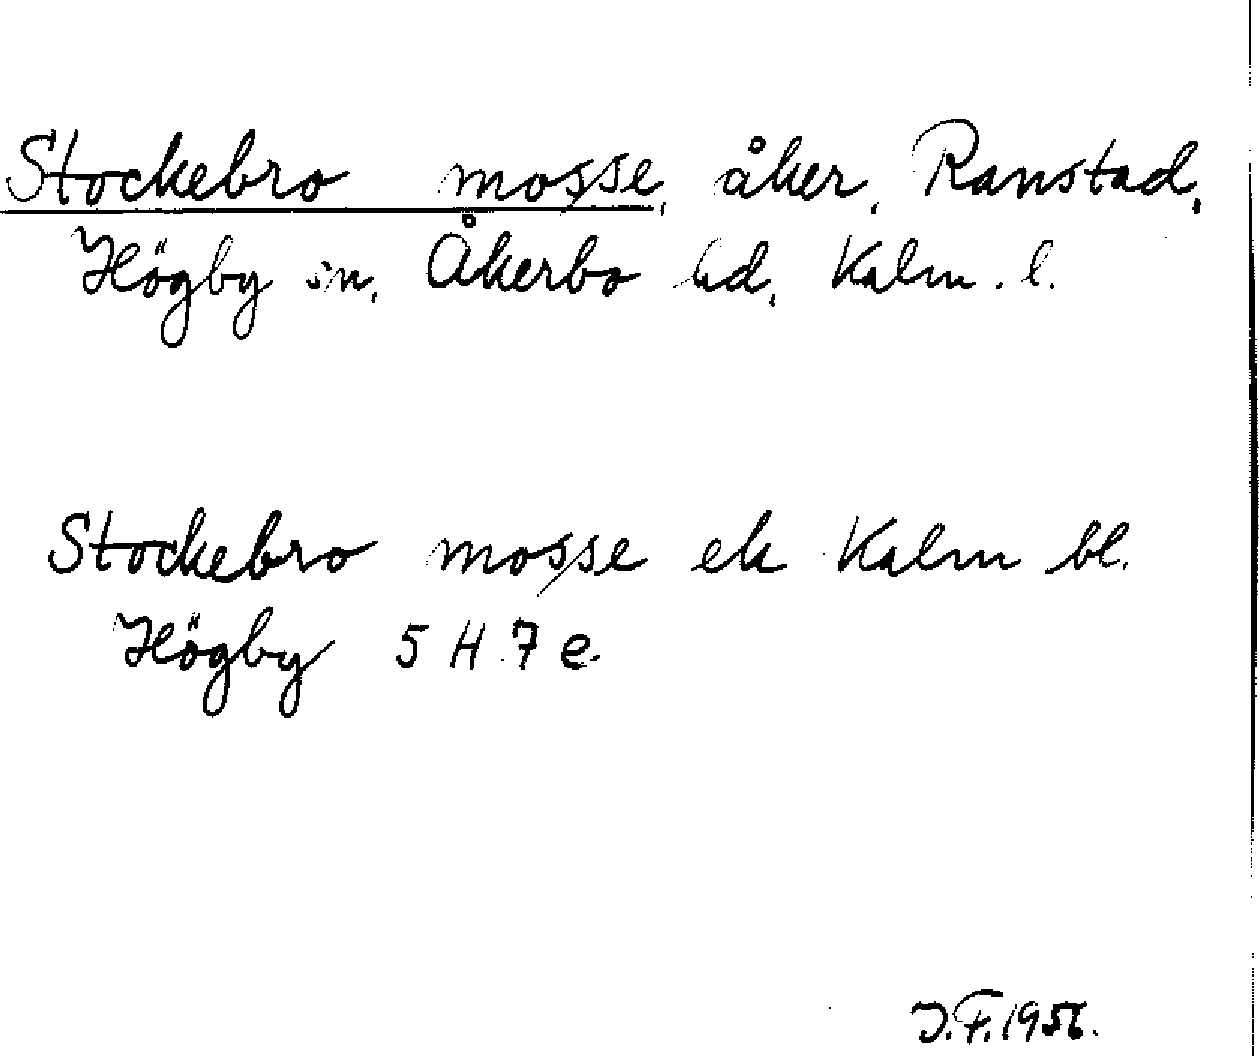 Stockebro mosse, åker, Ranstad,
Högby sn, Åkerbo hd, Kalm. l.
Stockebro mosse ek Kalm bl.
Högby 5 H 7 e.
J.F. 1956.